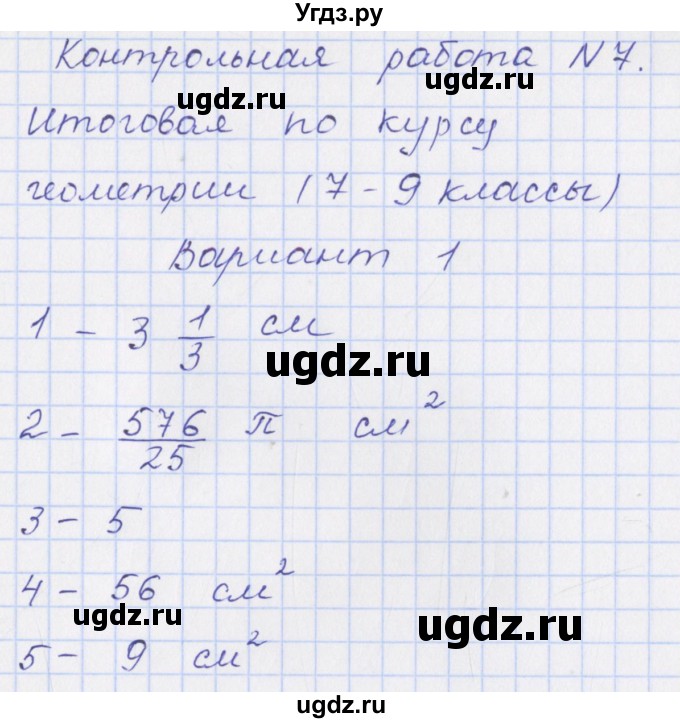 Угдз.ру
Контрольная работа N 7.
ugdz.ru ugdz.ru
Итоговая по курсу
геометрии (7 - 9 классы)
Вариант 1
1 - 3 1/3 см
ugdz.ru
2 - 576/25 π см²
3 - 5
4 - 56 см²
ugdz.ru ugdz.ru
5 - 9 см²
ugdz.ru